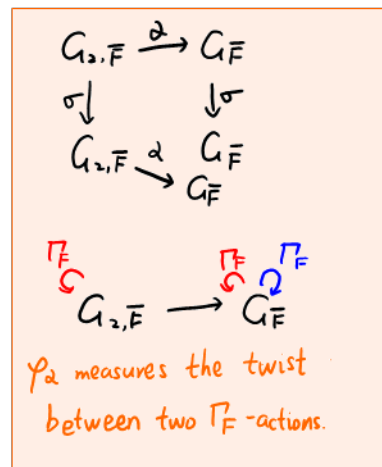 G₂,F̅ →α G_F̅
σ↓ ↓σ
G₂,F̅ →α G_F̅
G_F̅
Γ_F Γ_F Γ_F
G₂,F̅ → G_F̅
φ₂ measures the twist
between two Γ_F-actions.